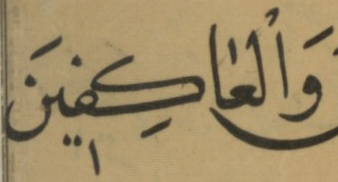 وَالْعَاكِفِينَ